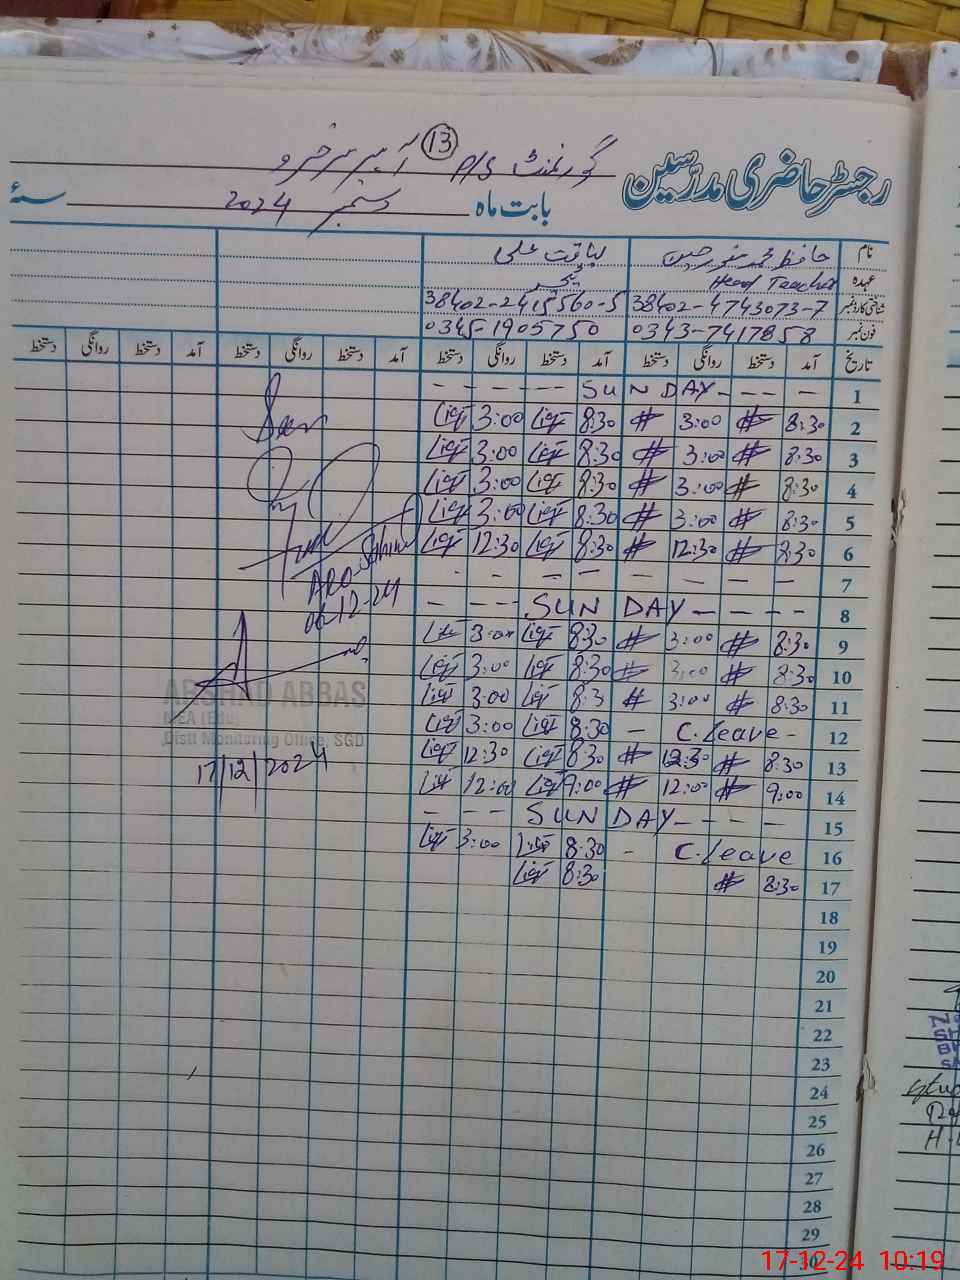 13
رجسٹر حاضری مدرسین گورنمنٹ P/S
بابت ماہ دسمبر 2024 سنۂ
نام حافظ محمد منور حسین لیاقت علی
عہدہ Head Teacher ٹیچر
شناختی کارڈ نمبر 38402-4743073-7 38402-2415560-5
فون نمبر 0343-7417858 0345-1905750
تاریخ آمد دستخط روانگی دستخط آمد دستخط روانگی دستخط آمد دستخط روانگی دستخط آمد دستخط روانگی دستخط
1 - - - - SUNDAY - - - - - -
2 8:30 # 3:00 # 8:30 لیاقت 3:00 لیاقت
3 8:30 # 3:00 # 8:30 لیاقت 3:00 لیاقت
4 8:30 # 3:00 # 8:30 لیاقت 3:00 لیاقت
5 8:30 # 3:00 # 8:30 لیاقت 3:00 لیاقت
6 8:30 # 12:30 # 8:30 لیاقت 12:30 لیاقت
7 - - - - - - - -
8 - - - SUN DAY - - - - -
9 8:30 # 3:00 # 8:30 لیاقت 3:00 لیاقت
10 8:30 # 3:00 # 8:30 لیاقت 3:00 لیاقت
11 8:30 # 3:00 # 8:3 لیاقت 3:00 لیاقت
12 - C.Leave - 8:30 لیاقت 3:00 لیاقت
13 8:30 # 12:30 # 8:30 لیاقت 12:30 لیاقت
14 9:00 # 12:00 # 9:00 لیاقت 12:00 لیاقت
15 - - - SUNDAY - - - -
16 C.Leave - 8:30 لیاقت 3:00 لیاقت
17 8:30 # 8:30 لیاقت
18
19
20
21
22
23
24
25
26
27
28
29
30
06-12-24
ARSHAD ABBAS
MEA (Edu)
Distt Monitoring Office, SGD
17/12/2024
17-12-24 10:19